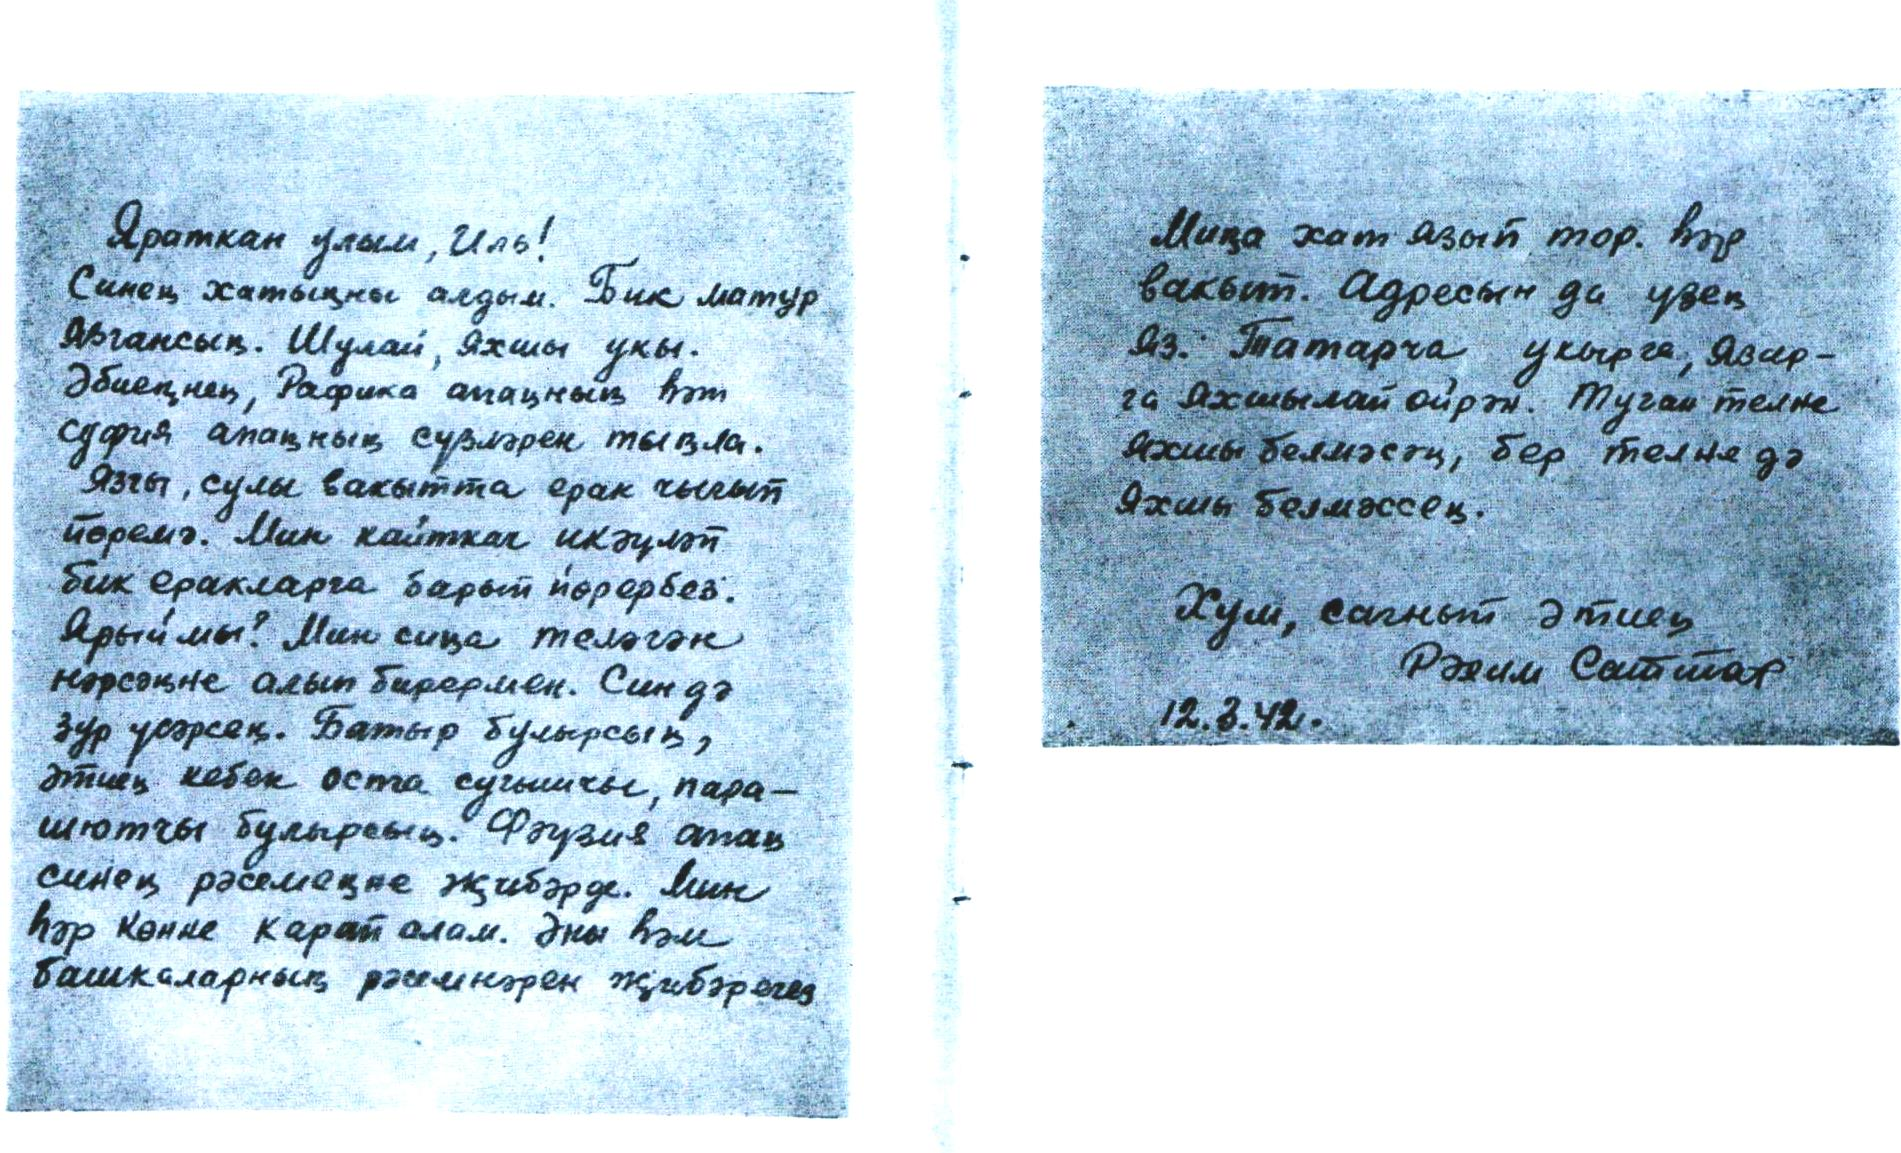 Яраткан улым, Иль!
Синең хатыңны алдым. Бик матур
язгансың. Шулай, яхшы укы.
Әбиеңнең, Рафика апаңның һәм
Суфия апаңның сүзләрен тыңла.
Язгы, сулы вакытта ерак чыгып
йөремә. Мин кайткач икәүләп
бик еракларга барып йөрербез.
Ярыймы? Мин сиңа теләгән
нәрсәңне алып бирермен. Син дә
зур үсәрсең. Батыр булырсың,
әтиең кебек оста сугышчы, пара-
шютчы булырсың. Фәүзия апаң
синең рәсемеңне җибәрде. Мин
һәр көнне карап алам. Әни һәм
башкаларның рәсемнәрен җибәрегез
Миңа хат язып тор. һәр
вакыт. Адресын да үзең
яз. Татарча укырга, язар-
га яхшылап өйрән. Туган телне
яхшы белмәсәң, бер телне дә
яхшы белмәссең.
Хуш, сагнып әтиең
Рәхим Саттар
12.3.42.